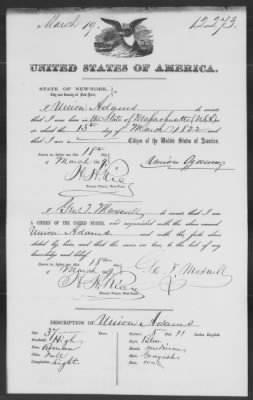 March 19. 12273.
UNITED STATES OF AMERICA.
STATE OF NEW-YORK,
City and County of New-York,
I Union Adams do swear
that I was born in the State of Massachusetts
on the 13th day of March 1822
Citizen of the United States of America.
Sworn to before me, this 18th
March Union Adams
Notary Public, New-York.
I Geo. F. Maxwell do swear that I am
A CITIZEN OF THE UNITED STATES, and acquainted with the above named
Union Adams and with the facts above
stated by him, and that the same is true, to the best of my
knowledge and belief
Sworn to before me, this 18th
March Geo. F. Maxwell
Notary Public, New-York.
DESCRIPTION OF Union Adams
Age 37 Stature 5 11
Forehead High Eyes Blue
Nose Roman Mouth medium
Chin Full Hair Grayish
Complexion Light Face oval